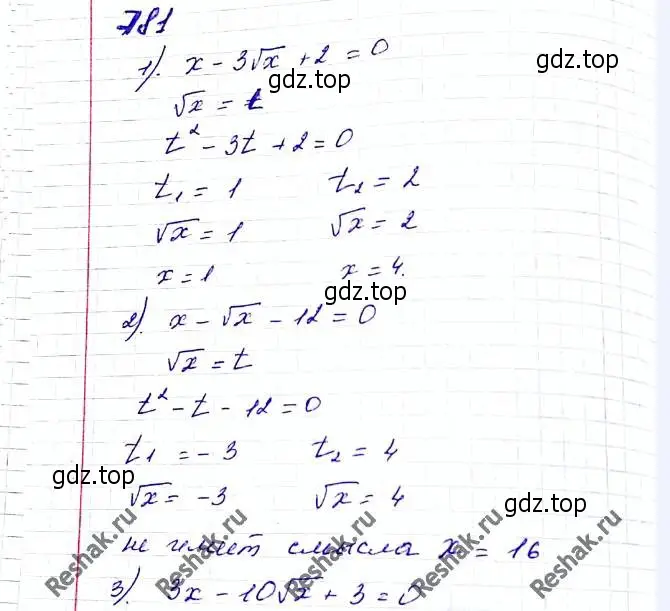 781
1). x - 3√x + 2 = 0
gdz.top
√x = t
t² - 3t + 2 = 0
t₁ = 1 t₂ = 2
√x = 1 √x = 2
x = 1 x = 4.
gdz.top
2). x - √x - 12 = 0
√x = t
t² - t - 12 = 0
t₁ = - 3 t₂ = 4
gdz.top
√x = - 3 √x = 4
gdz.top
не имеет смысла x = 16
3). 3x - 10√x + 3 = 0
Reshak.ru Reshak.ru Reshak.ru Reshak.ru Reshak.ru